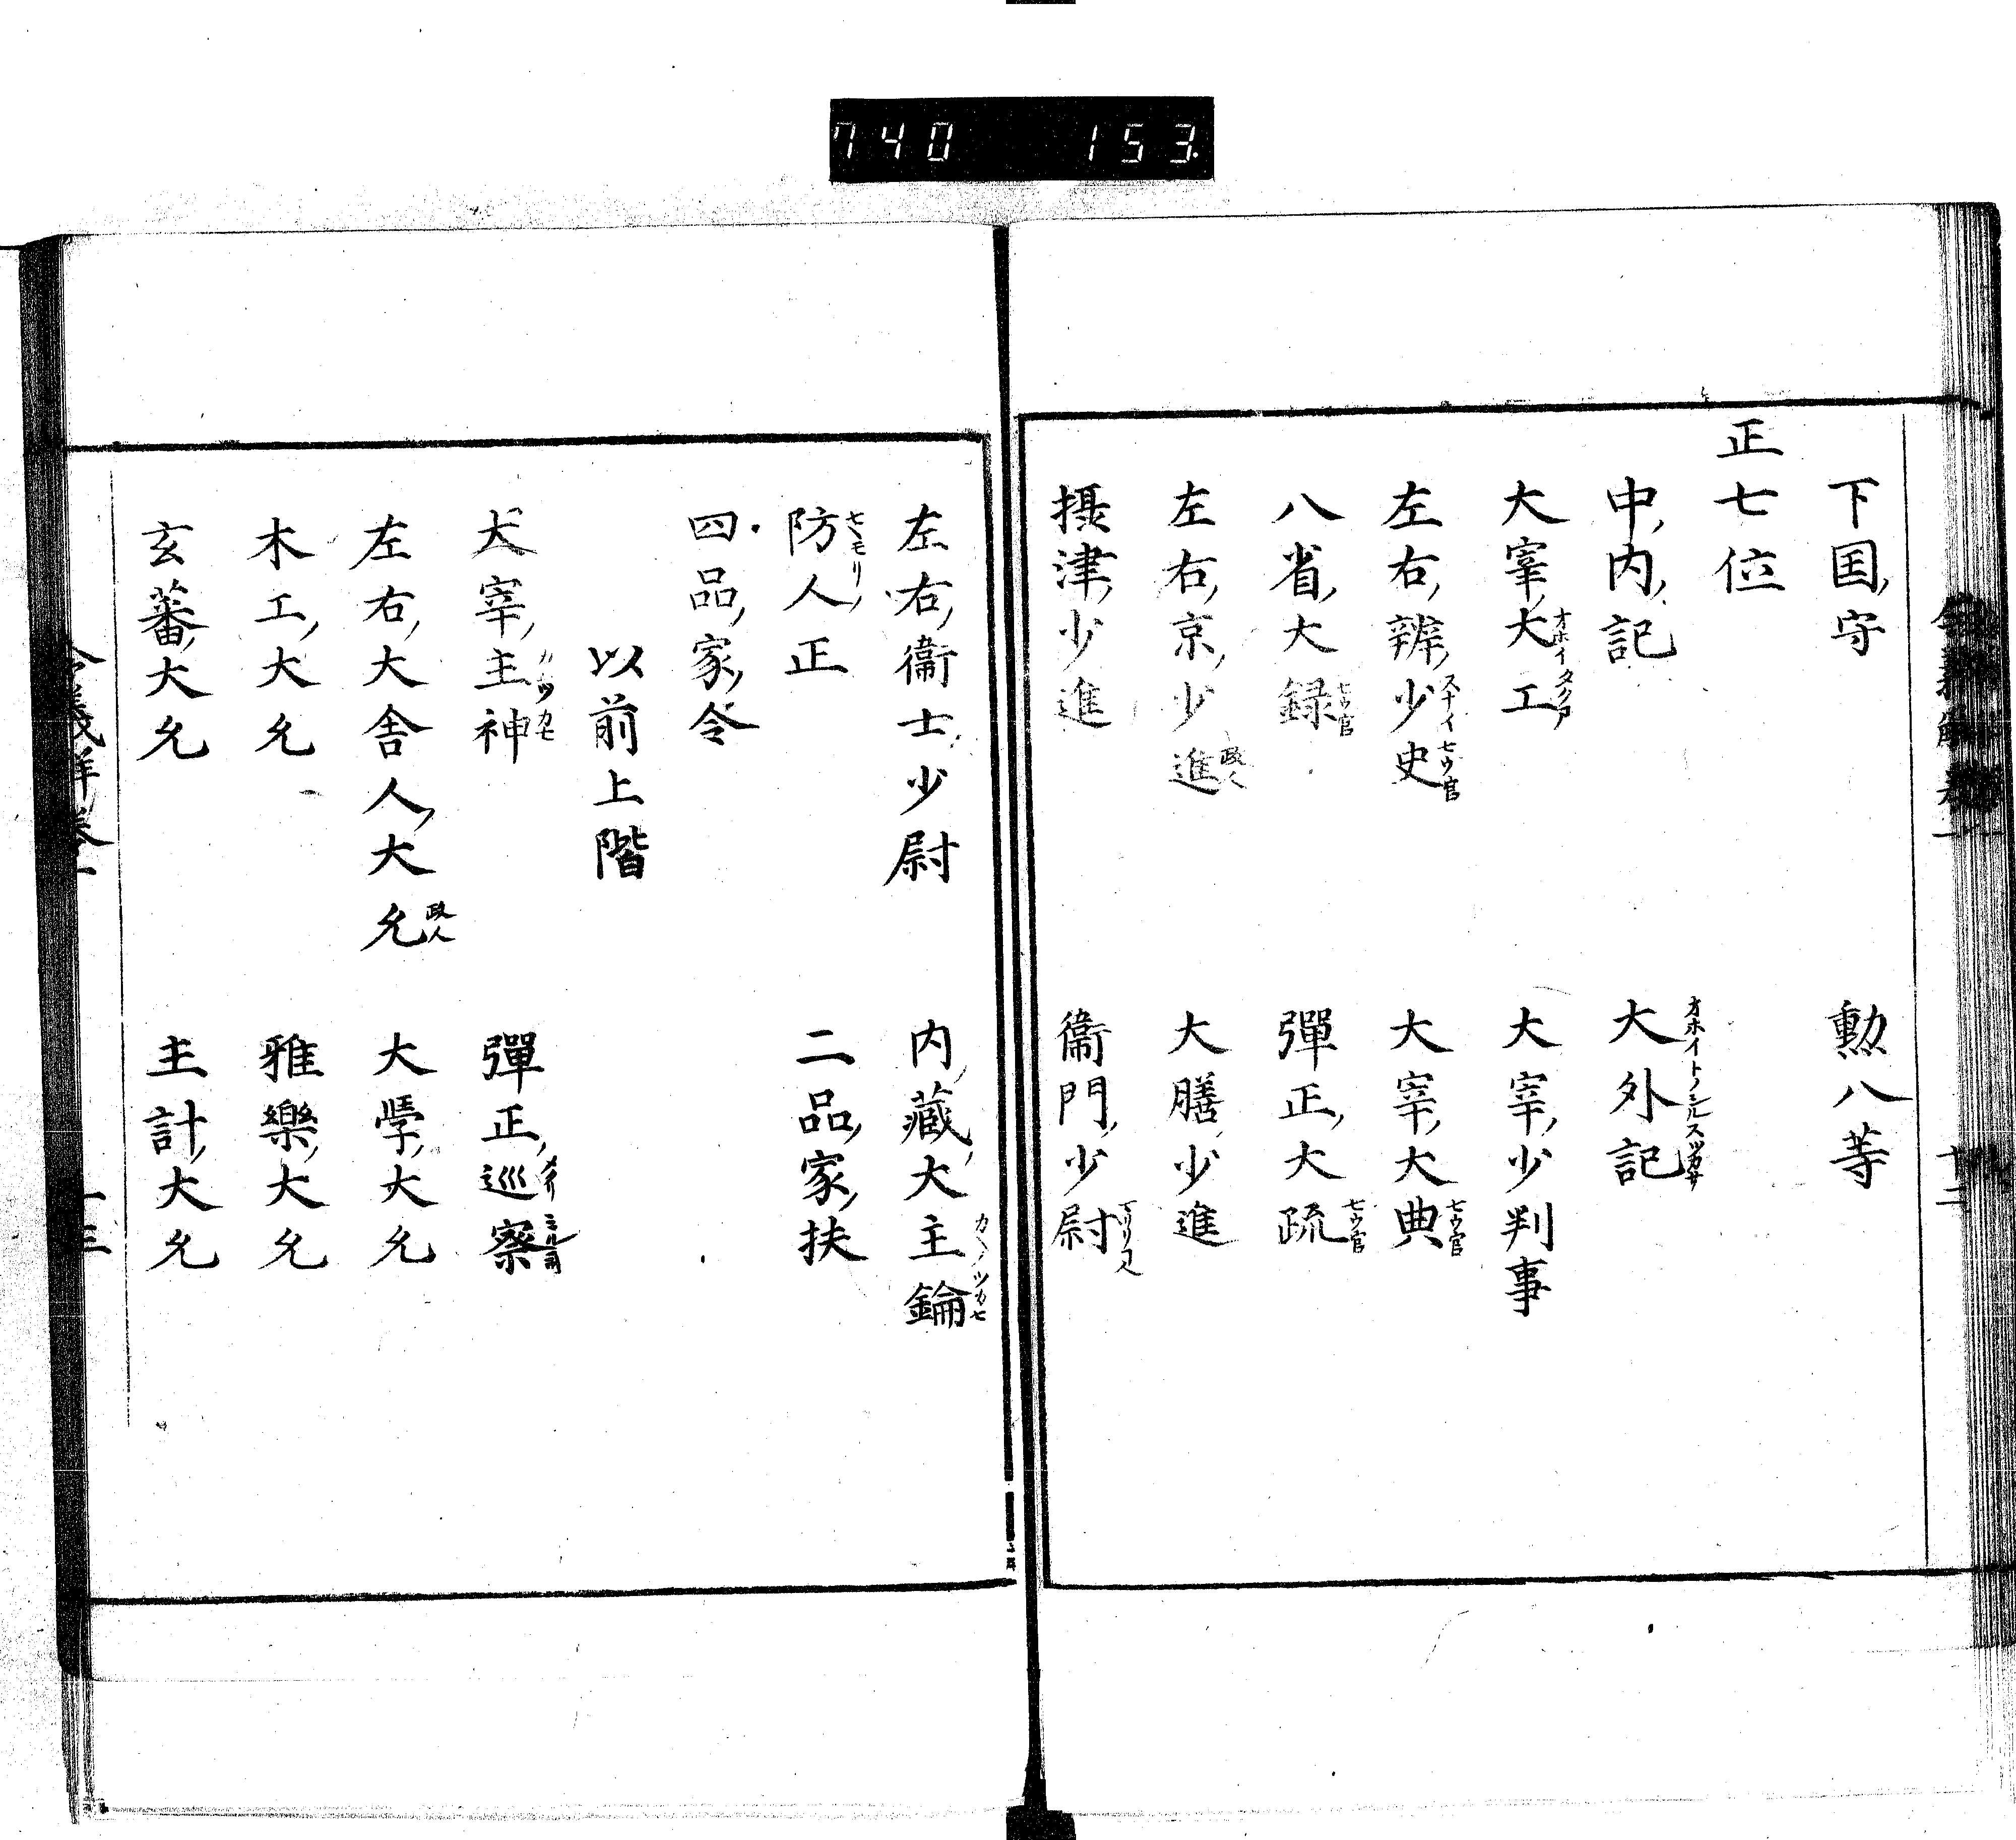 740 153
下国守 勲八等
正七位
中内記 大外記
大宰大工 大宰少判事
左右辨少史 大宰大典
八省大録 彈正大疏
左右京少進 大膳少進
摂津少進 衞門少尉
左右衞士少尉 内藏大主鑰
防人正 二品家扶
四品家令
以前上階
大宰主神 彈正巡察
左右大舎人大允 大学大允
木工大允 雅樂大允
玄蕃大允 主計大允